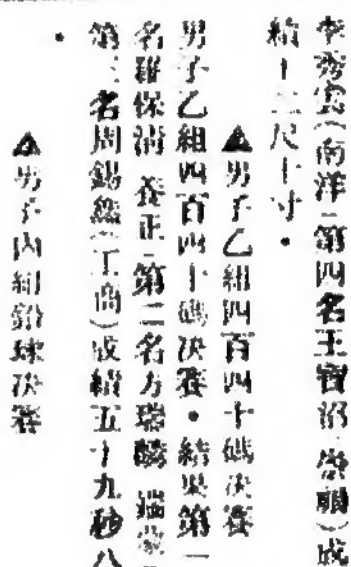 李秀雲(南洋)第四名王寶沼(啓願)成
績十二尺十寸。
▲男子乙組四百四十碼决賽
男子乙組四百四十碼决賽。結果第一
名羅保湖(養正)第二名方瑞麟(端蒙)
第三名周錫熊(工商)成績五十九秒八
。
▲男子丙組鉛球决賽